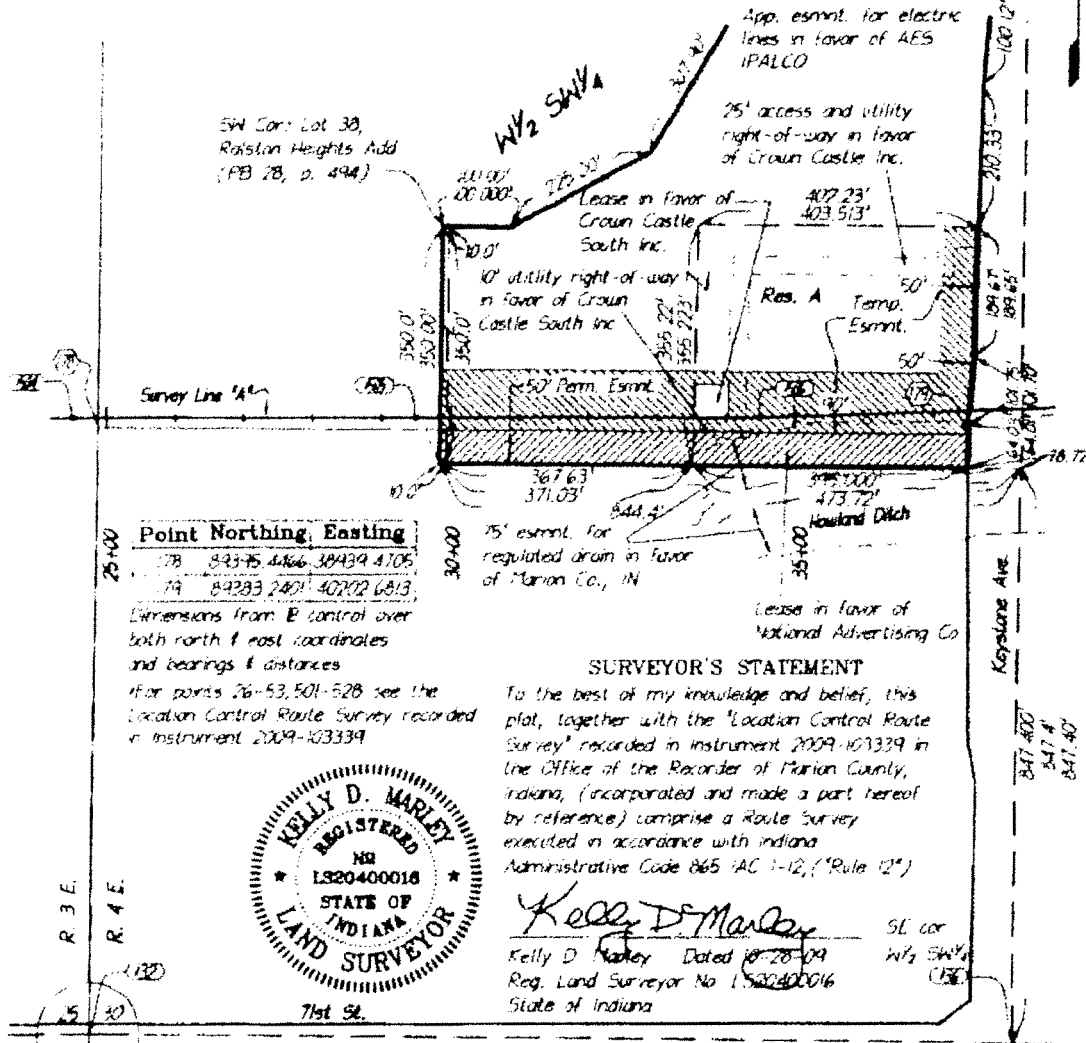 App. esmnt. for electric
lines in favor of AES
IPALCO
100.12'
W½ SW¼
SW Cor: Lot 38,
Ralston Heights Add
(PB 28, p. 494)
25' access and utility
right-of-way in favor
of Crown Castle Inc.
210.33'
100.00'
100.000'
Lease in favor of
Crown Castle
South Inc.
407.23'
403.513'
10.0'
10' utility right-of-way
in favor of Crown
Castle South Inc
Res. A
50'
Temp.
Esmnt.
189.67'
189.65'
350.0'
350.00'
350.0'
355.22'
355.223'
50'
Survey Line "A"
50' Perm. Esmnt.
78.72
10.0'
367.63'
371.03'
844.4'
395.000'
473.72'
Howland Ditch
25+00
30+00
35+00
Point Northing Easting
78 89395.4466 38939.4705
79 89383.2401 40202.6813
Dimensions from control over
both north & east coordinates
and bearings & distances
For points 26-53, 501-528 see the
Location Control Route Survey recorded
in Instrument 2009-103339
75' esmnt. for
regulated drain in favor
of Marion Co., IN
Lease in favor of
National Advertising Co
Keystone Ave.
847.400'
847.4'
847.40'
SURVEYOR'S STATEMENT
To the best of my knowledge and belief, this
plat, together with the "Location Control Route
Survey" recorded in Instrument 2009-103339 in
the Office of the Recorder of Marion County,
Indiana, (incorporated and made a part hereof
by reference) comprise a Route Survey
executed in accordance with Indiana
Administrative Code 865 IAC 1-12, ("Rule 12")
KELLY D. MARLEY
REGISTERED
NO
LS20400016
STATE OF
INDIANA
LAND SURVEYOR
Kelly D Marley
Kelly D Marley Dated 8-28-09
Reg. Land Surveyor No LS20400016
State of Indiana
SE cor
W½ SW¼
R. 3 E.
R. 4 E.
132
25 30
71st St.